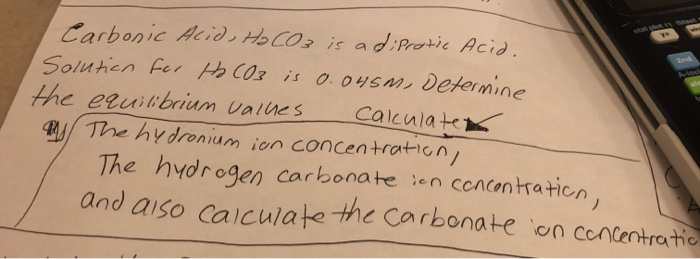 Carbonic Acid, H2CO3 is a diprotic Acid.
Solution for H2CO3 is 0.045M, Determine
the equilibrium values calculate
The hydronium ion concentration,
The hydrogen carbonate ion concentration,
and also calculate the carbonate ion concentratio
2nd